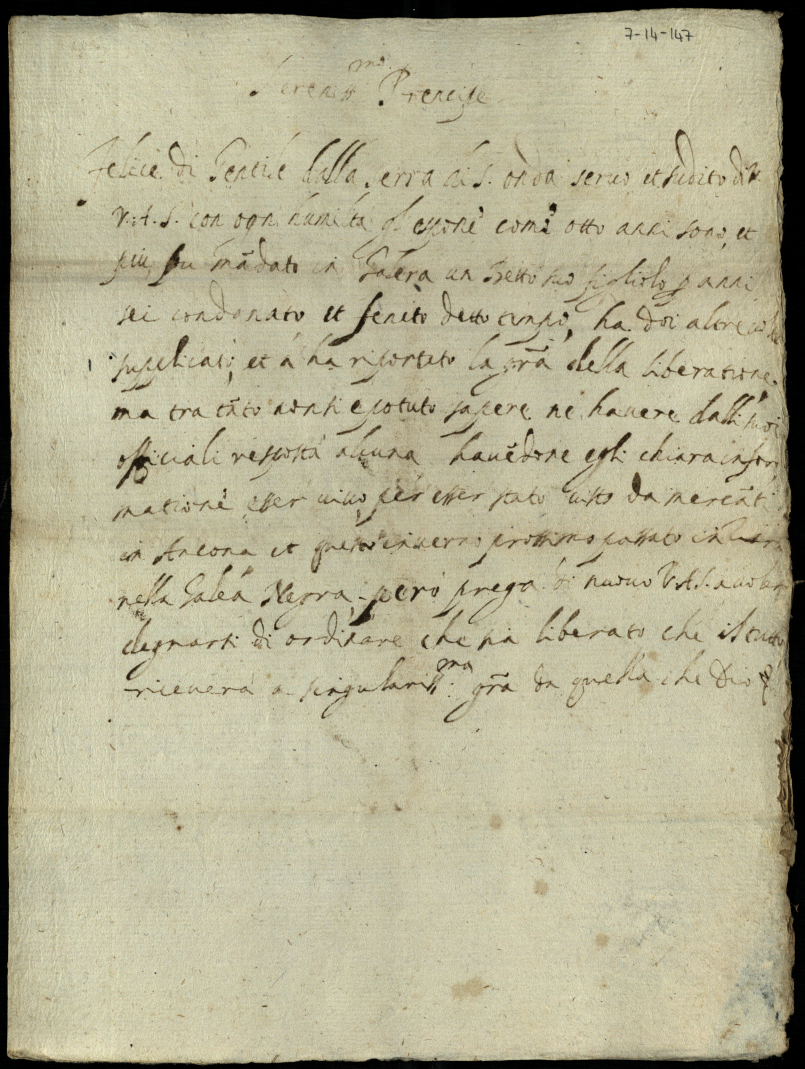 7-14-147
Sereniss.mo Prencipe
Felice di Gentile dalla Serra di S. onda servo et sudito di
V.A.S. con ogni humiltà gl'espone come otto anni sono, et
più fu mãdato in Galera un suo figliolo p anni
sei condonato et fenito detto tempo, ha doi altre volte
supplicato, et à ha riportato la grã della liberatione
ma tra tãto non si è potuto sapere ne havere dalli suoi
officiali resposta alcuna havẽdone egli chiara infor
matione esser vivo, per esser stato visto da mercãti
in Ancona et questo inverno prossimo passato in
nella Galea Negra, però prega di nuovo V.A.S. a voler
degnarsi di ordinare che sia liberato che il tutto
riceverà a singulariss.ma grã da quella che Dio